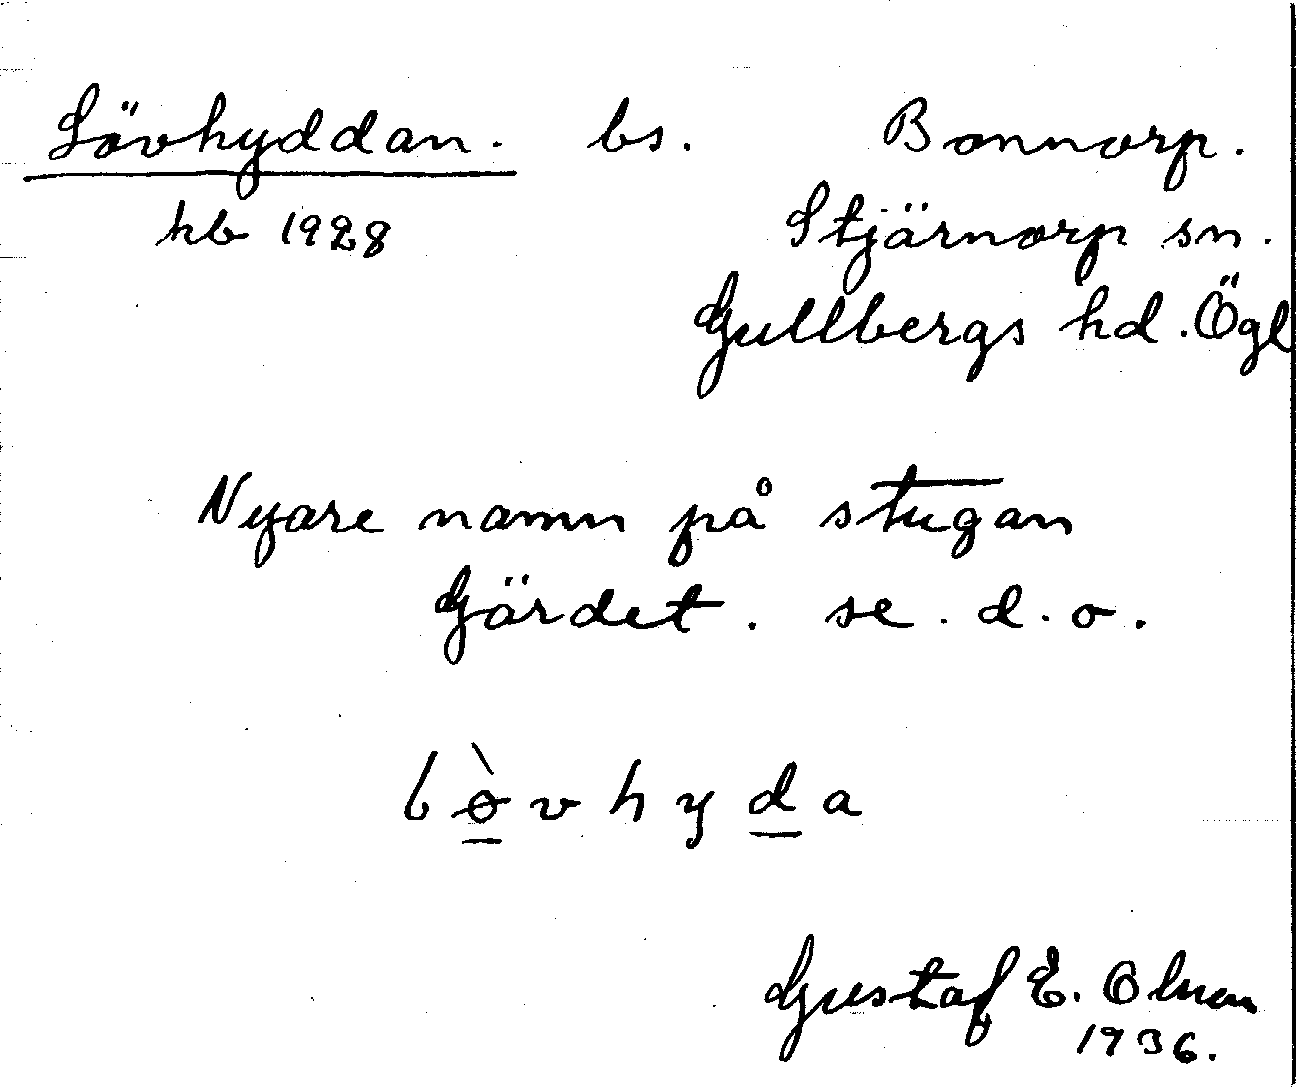 Lövhyddan. bs. Bonnorp.
hb 1928 Stjärnorp sn.
Gullbergs hd. Ögl
Nyare namn på stugan
Gärdet. se. d. o.
lø̀vhyda
Gustaf E. Olson
1936.